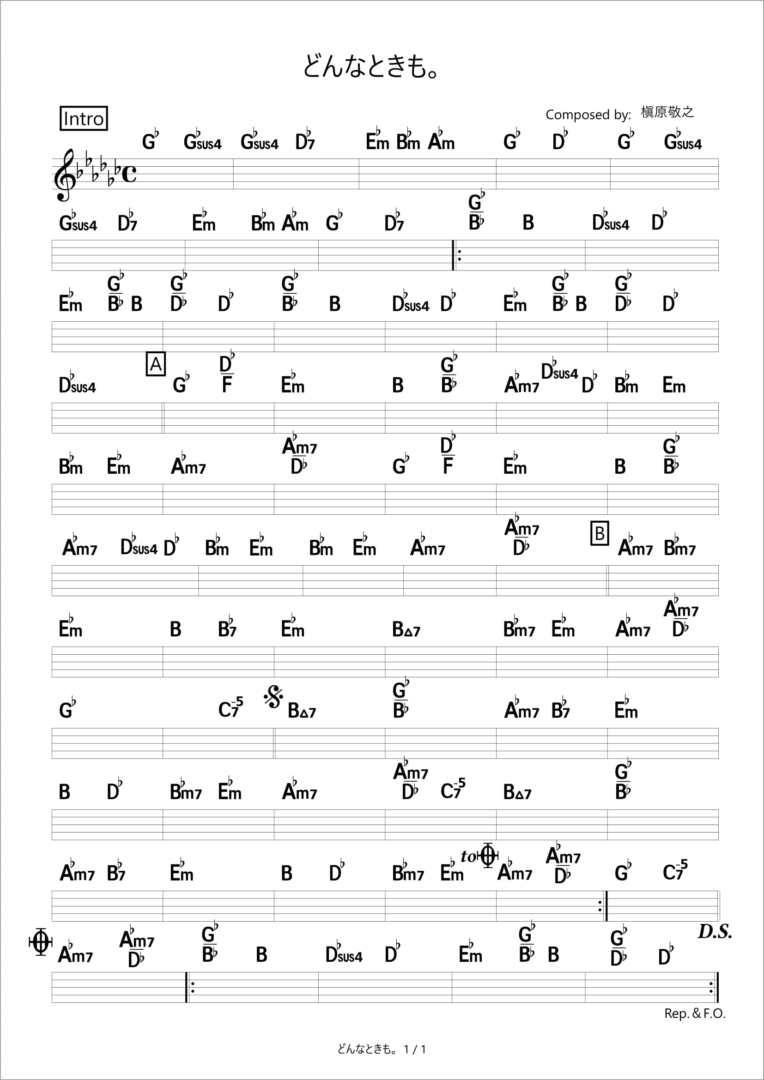 どんなときも。
Intro
Composed by: 槇原敬之
G♭ G♭sus4 G♭sus4 D♭7 E♭m B♭m A♭m G♭ D♭ G♭ G♭sus4
G♭sus4 D♭7 E♭m B♭m A♭m G♭ D♭7 G♭/B♭ B D♭sus4 D♭
E♭m G♭/B♭ B G♭/D♭ D♭ G♭/B♭ B D♭sus4 D♭ E♭m G♭/B♭ B G♭/D♭ D♭
D♭sus4 A G♭ D♭/F E♭m B G♭/B♭ A♭m7 D♭sus4 D♭ B♭m E♭m
B♭m E♭m A♭m7 A♭m7/D♭ G♭ D♭/F E♭m B G♭/B♭
A♭m7 D♭sus4 D♭ B♭m E♭m B♭m E♭m A♭m7 A♭m7/D♭ B A♭m7 B♭m7
E♭m B B♭7 E♭m B△7 B♭m7 E♭m A♭m7 A♭m7/D♭
G♭ C7-5 B△7 G♭/B♭ A♭m7 B♭7 E♭m
B D♭ B♭m7 E♭m A♭m7 A♭m7/D♭ C7-5 B△7 G♭/B♭
A♭m7 B♭7 E♭m B D♭ B♭m7 E♭m to A♭m7 A♭m7/D♭ G♭ C7-5
D.S.
A♭m7 A♭m7/D♭ G♭/B♭ B D♭sus4 D♭ E♭m G♭/B♭ B G♭/D♭ D♭
Rep. & F.O.
どんなときも。 1 / 1